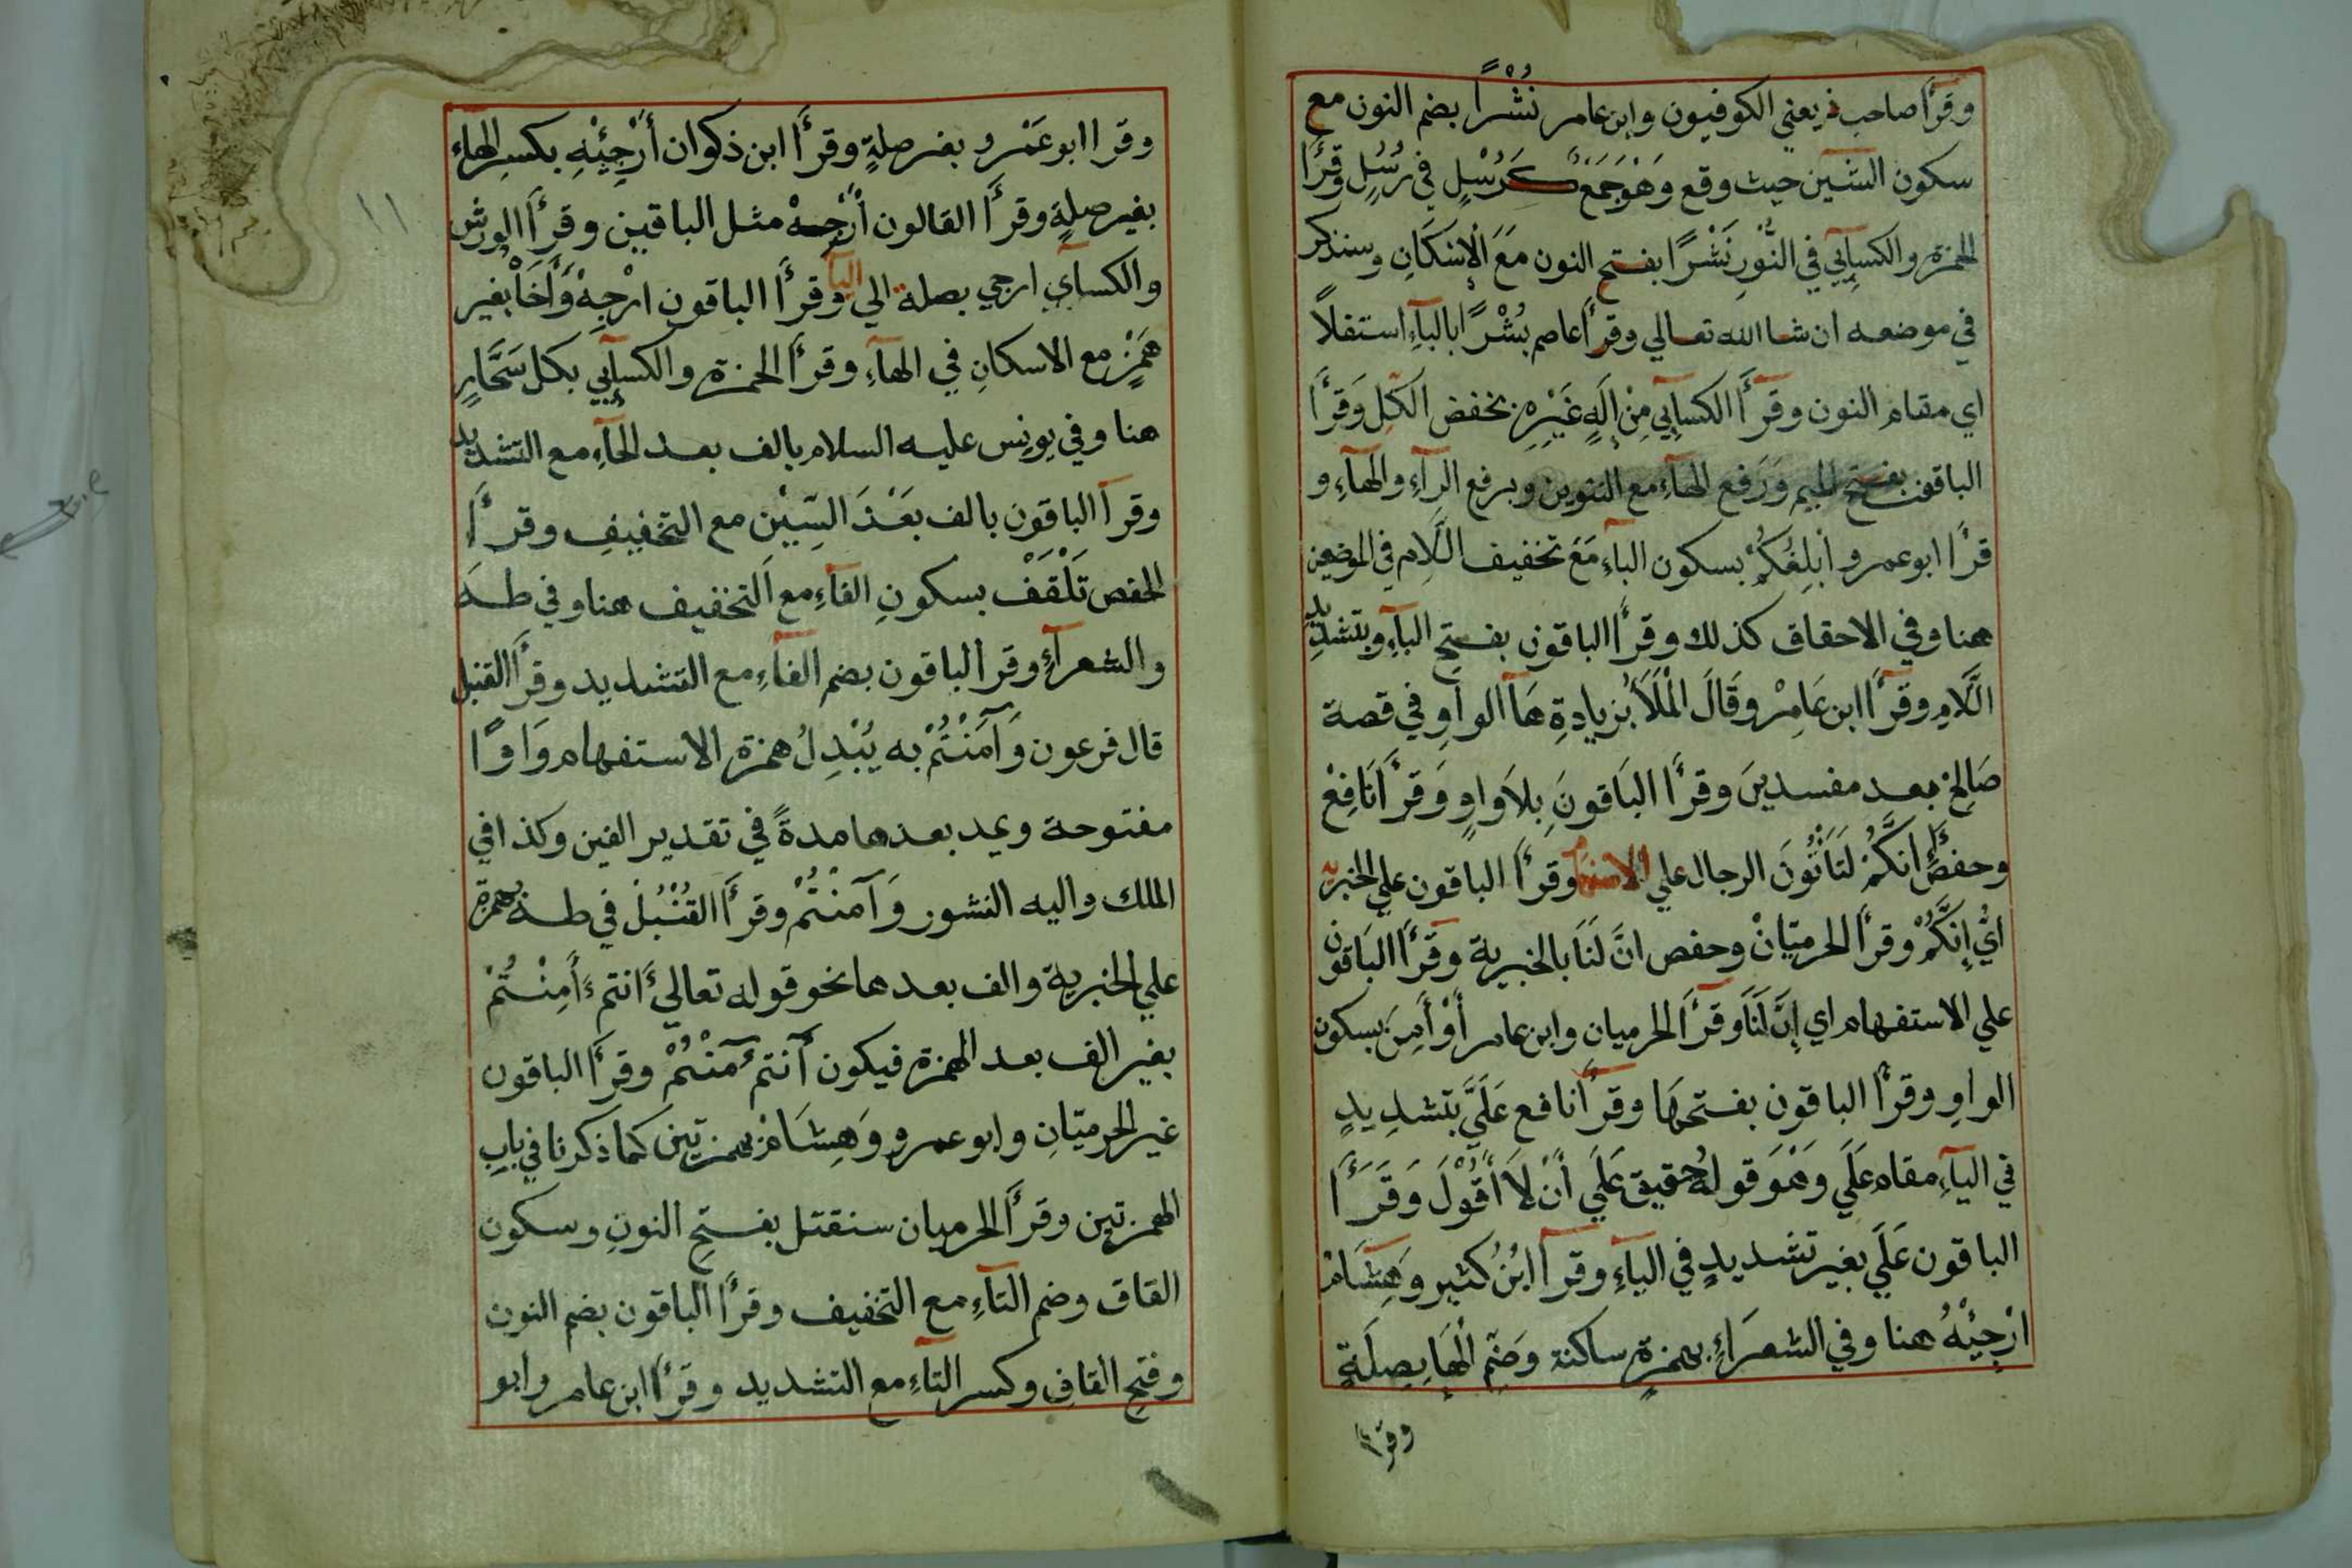 وقرأ صاحب ذ يعني الكوفيون وابن عامر نُشْرًا بضم النون مع
سكون الشين حيث وقع وَهُوَ جَمَعٌ كَرُسْلٍ في رُسُلٍ وقرأ
الحمزة والكسآيي في النُّورِ نَشْرًا بفتح النون مَعَ الْاِسْكَانِ وسنذكر
في موضعه ان شا الله تعالي وقرأ عاصم بُشْرًا بالبآءِ استفلاً
اي مقام النون وقرأَ الكسآيي مِنْ اِلَهٍ غَيْرِهِ بخفض الكل وَقرأَ
الباقون بفتح الميم وَرَفع الهآءِ مع التنوين وبرفع الرآءِ والهآءِ و
قرأ ابوعمرو اُبْلِغُكُمْ بسكون البآءِ مَعَ تخفيف اللّامِ في الموضعين
هنا وفي الاحقاق كذلك وقرأَ الباقون بفتح البآءِ وبتشديد
اللّامِ وقرأَ ابن عَامِرْ وَقَالَ الْمَلَأُ بزيادةِ هَا الواوِ في قصة
صَالِحْ بعد مفسدينَ وقرأَ البَاقونَ بِلاَوَاوٍ وَقرأَ نَافِعْ
وحفصٌ اِنَّكُمْ لَتَأْتُونَ الرجال علي الاستفهام وقرأَ الباقون علي الخبرية
اَيْ اِنَّكُمْ وقرأَ الحرميّانْ وحفص انَّ لَنَا بالخبرية وَقرأَ البَاقون
علي الاستفهام اي اِنَّ لَنَا وَقرأَ الحرميان وابن عامر أَوْ أَمِنَ بسكون
الواوِ وقرأَ الباقون بفتحهَا وقرأَ نافع عَلَيَّ بتشدِيدٍ
في اليآءِ مقام عَلَي وَهُوَ قوله حقيق عَلَي أَنْ لاَ أَقُوْلَ وَقَرَأَ
الباقون عَلَي بغير تشديدٍ في اليآءِ وقرأ ابْنُ كثير وَهِشَامْ
اَرْجِئْهُ هنا وفي الشعرَاءِ بهمزةٍ ساكنة وَضَمِّ الْهَاءِ بِصِلَةٍ
وقرأ
وقرا ابوعَمْرو بغير صلةٍ وقرأَ ابن ذكوان أَرْجِئْهِ بكسرِ الهاءِ
بغير صلةٍ وقرأَ القالون أَرْجِهْ مثل الباقين وقرأَ الورش
والكسآي ارجي بصلة الي اليآ وقرأَ الباقون ارْجِهْ وَأَخَاْ بغير
هَمْزٍ مع الاسكانِ في الهآءِ وقرأَ الحمزة والكسآيي بكل سَحَّارٍ
هنا وفي يونس عليه السلام بالف بعد الحآءِ مع التشديد
وقرأ الباقون بالف بَعْدَ السِّيْن مع التخفيفِ وقرأَ
الحفص تَلْقَفْ بسكونِ الفآءِ مع التخفيف هنا وفي طهَ
والشعرآءِ وقرأ الباقون بضم الفآءِ مع التشديد وقرأَ القنبل
قال فرعون وَآمَنْتُمْ به يُبْدِلُ همزة الاستفهام وَاوًا
مفتوحة ويمد بعدها مدةً في تقدير الفين وكذا في
الملك واليه النشور وَآمنْتُمْ وقرأَ القُنْبُلْ في طه بهمزة
علي الخبرية والف بعدها نحو قوله تعالي ءَانتم ءَأَمِنْتُمْ
بغير الف بعد الهمزة فيكون أَنتم ءَمَنْتُمْ وقرأَ الباقون
غير الحرميّانِ وابوعمرو وَهِشَامْ بهمزتين كما ذكرنا في بابِ
الهمزتين وقرأَ الحرميان سنقتل بفتح النونِ وسكون
القاق وضم التآءِ مع التخفيف وقرأَ الباقون بضم النون
وفتح القافِ وكسر التآءِ مع التشديد وقرأَ ابن عامر وابو
١١